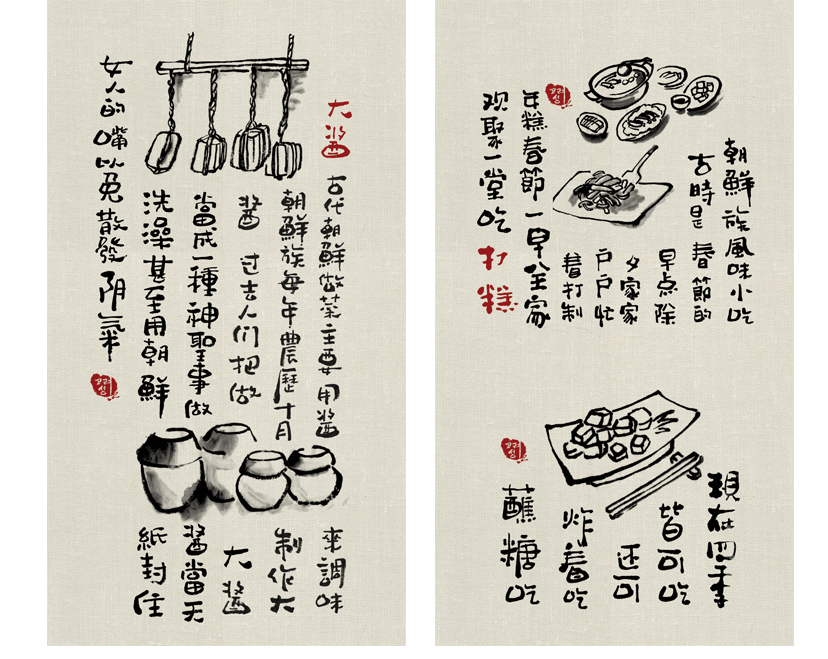 大酱
古代朝鮮做菜主要用醬來調味
朝鮮族每年農歷十月制作大
醬 过去人们把做大醬
當成一種神聖事做醬當天
洗澡甚至用朝鮮紙封住
女人的嘴以免散發阴氣
고려
성
朝鮮族風味小吃
古時是春節的
早点除
夕家家
户户忙
着打制
年糕春節一早全家
欢聚一堂吃打糕
고려
성
現在四季
皆可吃
还可
炸着吃
蘸糖吃
고려
성